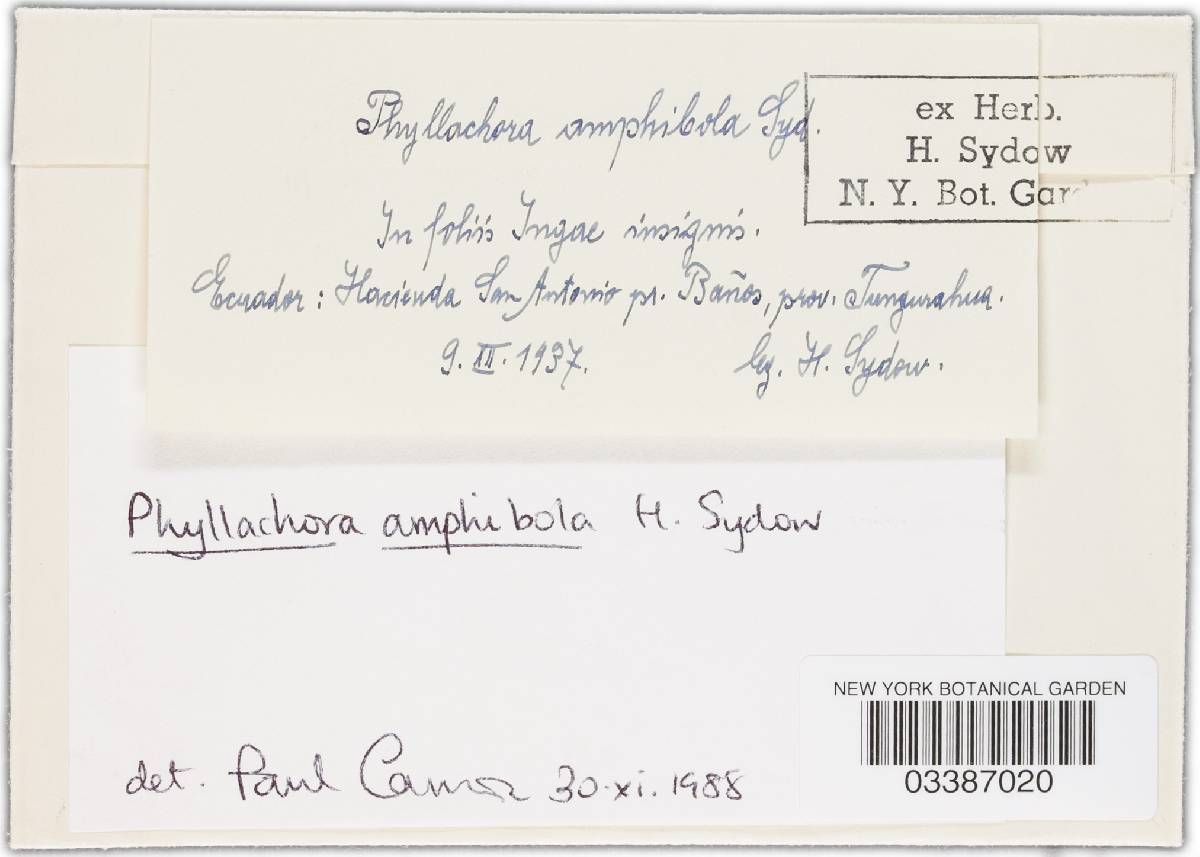 Phyllachora amphibola Syd.
ex Herb.
H. Sydow
N. Y. Bot. Gard
In foliis Ingae insignis.
Ecuador: Hacienda San Antonio pr. Baños, prov. Tungurahua.
9. XII. 1937. leg. H. Sydow.
Phyllachora amphibola H. Sydow
det. Paul Cannon 30.xi.1988
NEW YORK BOTANICAL GARDEN
03387020